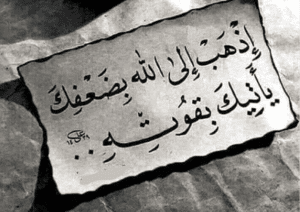 إِذْهَبْ إِلىٰ اللهِ بِضَعْفِكَ
يَأتِيكَ بِقُوَّتِهِ ..